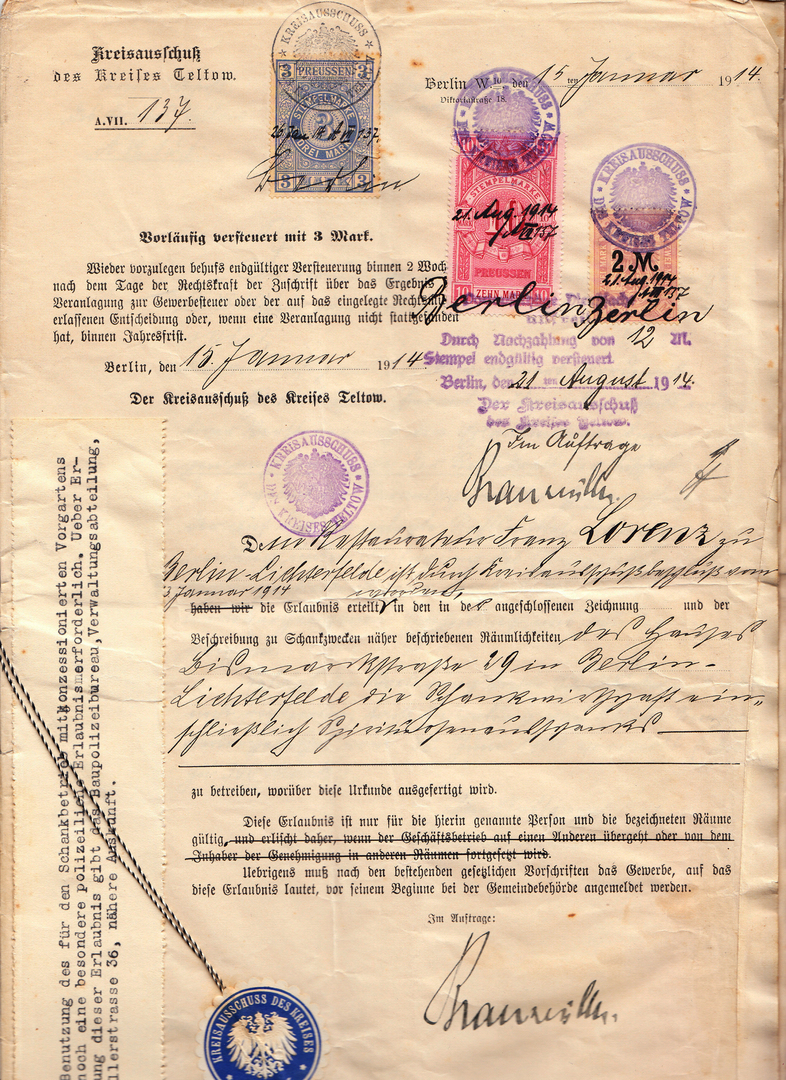 Kreisausschuß
des Kreises Teltow.
A.VII. 137.
KREISAUSSCHUSS
3 PREUSSEN 3
STEMPELMARKE
3
DREI MARK
3 3
26 Jan. 14 A VII 137
Berlin
Berlin W., den 15ten Januar 1914.
Viktoriastraße 18.
KREISAUSSCHUSS
DES KREISES TELTOW
10
STEMPELMARKE
21. Aug. 1914
A VII 137
PREUSSEN
10 ZEHN MARK 10
Berlin
KREISAUSSCHUSS
DES KREISES TELTOW
2 M
21. Aug. 1914
A VII 137
Berlin
Vorläufig versteuert mit 3 Mark.
Wieder vorzulegen behufs endgültiger Versteuerung binnen 2 Woch
nach dem Tage der Rechtskraft der Zuschrift über das Ergebnis
Veranlagung zur Gewerbesteuer oder der auf das eingelegte Rechtsmit
erlassenen Entscheidung oder, wenn eine Veranlagung nicht stattgefunden
hat, binnen Jahresfrist.
Berlin, den 15. Januar 1914.
Der Kreisausschuß des Kreises Teltow.
Durch Nachzahlung von 12 M.
Stempel endgültig versteuert.
Berlin, den 21ten August 1914.
Der Kreisausschuß
des Kreises Teltow.
Im Auftrage
KREISAUSSCHUSS
DES KREISES TELTOW
Dem Restaurateur Franz Lorenz zu
Berlin-Lichterfelde ist durch Kreisausschußbeschluß vom
3 Januar 1914 worden,
haben wir die Erlaubnis erteilt in den in der angeschlossenen Zeichnung und der
Beschreibung zu Schankzwecken näher beschriebenen Räumlichkeiten des Hauses
Bismarckstraße 29 in Berlin-
Lichterfelde die Schankwirtschaft ein-
schließlich Spirituosenausschanks
zu betreiben, worüber diese Urkunde ausgefertigt wird.
Diese Erlaubnis ist nur für die hierin genannte Person und die bezeichneten Räume
gültig, und erlischt daher, wenn der Geschäftsbetrieb auf einen Anderen übergeht oder von dem
Inhaber der Genehmigung in anderen Räumen fortgesetzt wird.
Uebrigens muß nach den bestehenden gesetzlichen Vorschriften das Gewerbe, auf das
diese Erlaubnis lautet, vor seinem Beginne bei der Gemeindebehörde angemeldet werden.
Im Auftrage:
Benutzung des für den Schankbetrieb mitkonzessionierten Vorgartens
noch eine besondere polizeiliche Erlaubniserforderlich. Ueber Er-
ung dieser Erlaubnis gibt das Baupolizeibureau,Verwaltungsabteilung,
llerstrasse 36, nähere Auskunft.
KREISAUSSCHUSS DES KREISES